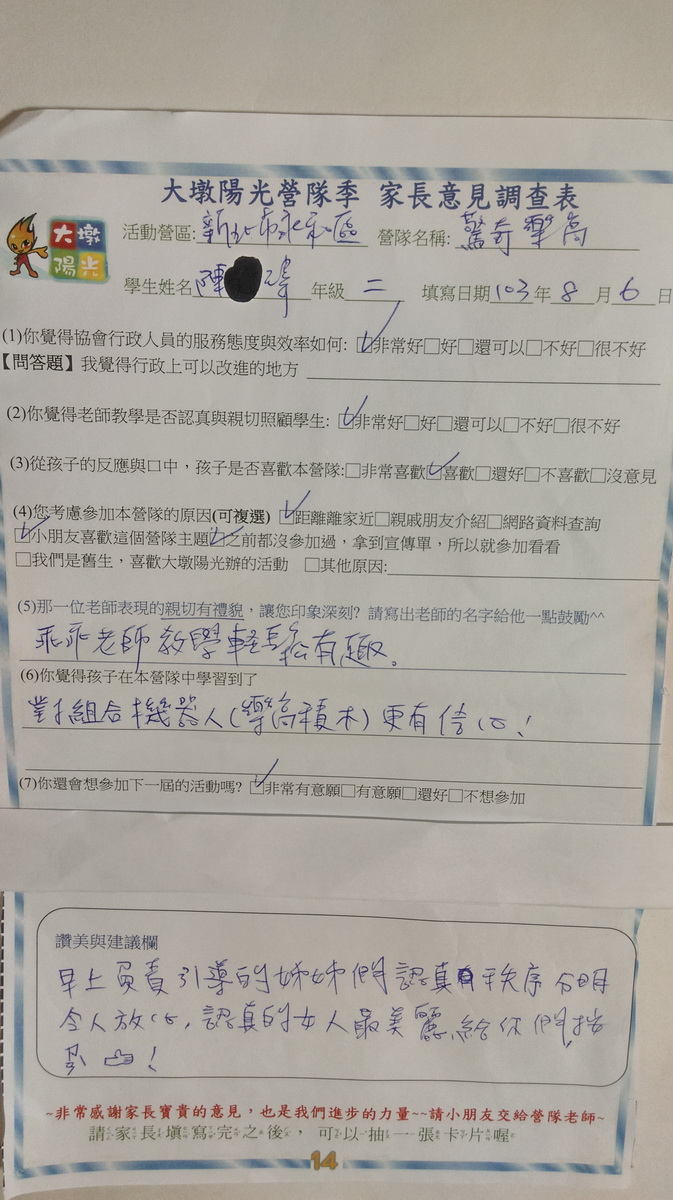 大墩陽光營隊季 家長意見調查表
大墩
陽光
活動營區:新北市永和區 營隊名稱:驚奇樂高
學生姓名陳瑋年級二 填寫日期103年8月6日
(1)你覺得協會行政人員的服務態度與效率如何:☑非常好□好□還可以□不好□很不好
【問答題】我覺得行政上可以改進的地方
(2)你覺得老師教學是否認真與親切照顧學生:☑非常好□好□還可以□不好□很不好
(3)從孩子的反應與口中，孩子是否喜歡本營隊:□非常喜歡☑喜歡□還好□不喜歡□沒意見
(4)您考慮參加本營隊的原因(可複選) ☑距離離家近□親戚朋友介紹□網路資料查詢
☑小朋友喜歡這個營隊主題☑之前都沒參加過，拿到宣傳單，所以就參加看看
□我們是舊生，喜歡大墩陽光辦的活動 □其他原因:
(5)那一位老師表現的親切有禮貌，讓您印象深刻? 請寫出老師的名字給他一點鼓勵^^
乖乖老師 教學輕鬆有趣。
(6)你覺得孩子在本營隊中學習到了
對組合機器人(樂高積木)更有信心!
(7)你還會想參加下一屆的活動嗎? ☑非常有意願□有意願□還好□不想參加
讚美與建議欄
早上負責引導的姊姊們認真有秩序分明
令人放心,認真的女人最美麗,給你們按
!
~非常感謝家長寶貴的意見，也是我們進步的力量~~請小朋友交給營隊老師~
請家長填寫完之後，可以抽一張卡片喔
14